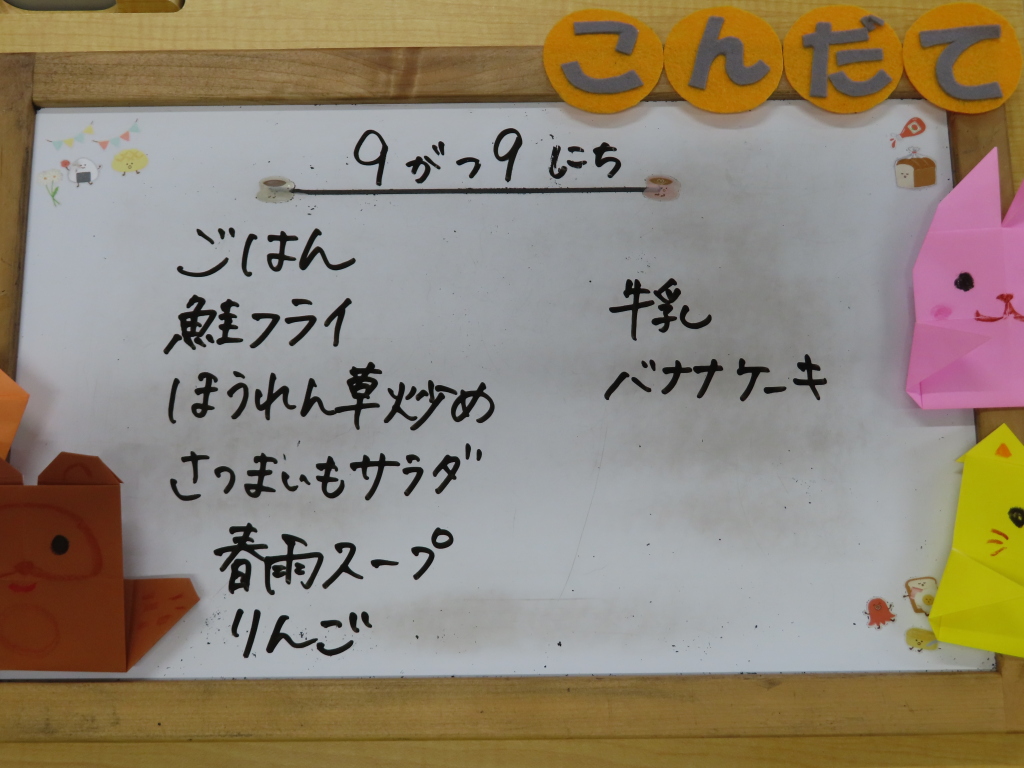 こんだて
9がつ9にち
ごはん
鮭フライ
ほうれん草炒め
さつまいもサラダ
春雨スープ
りんご
牛乳
バナナケーキ